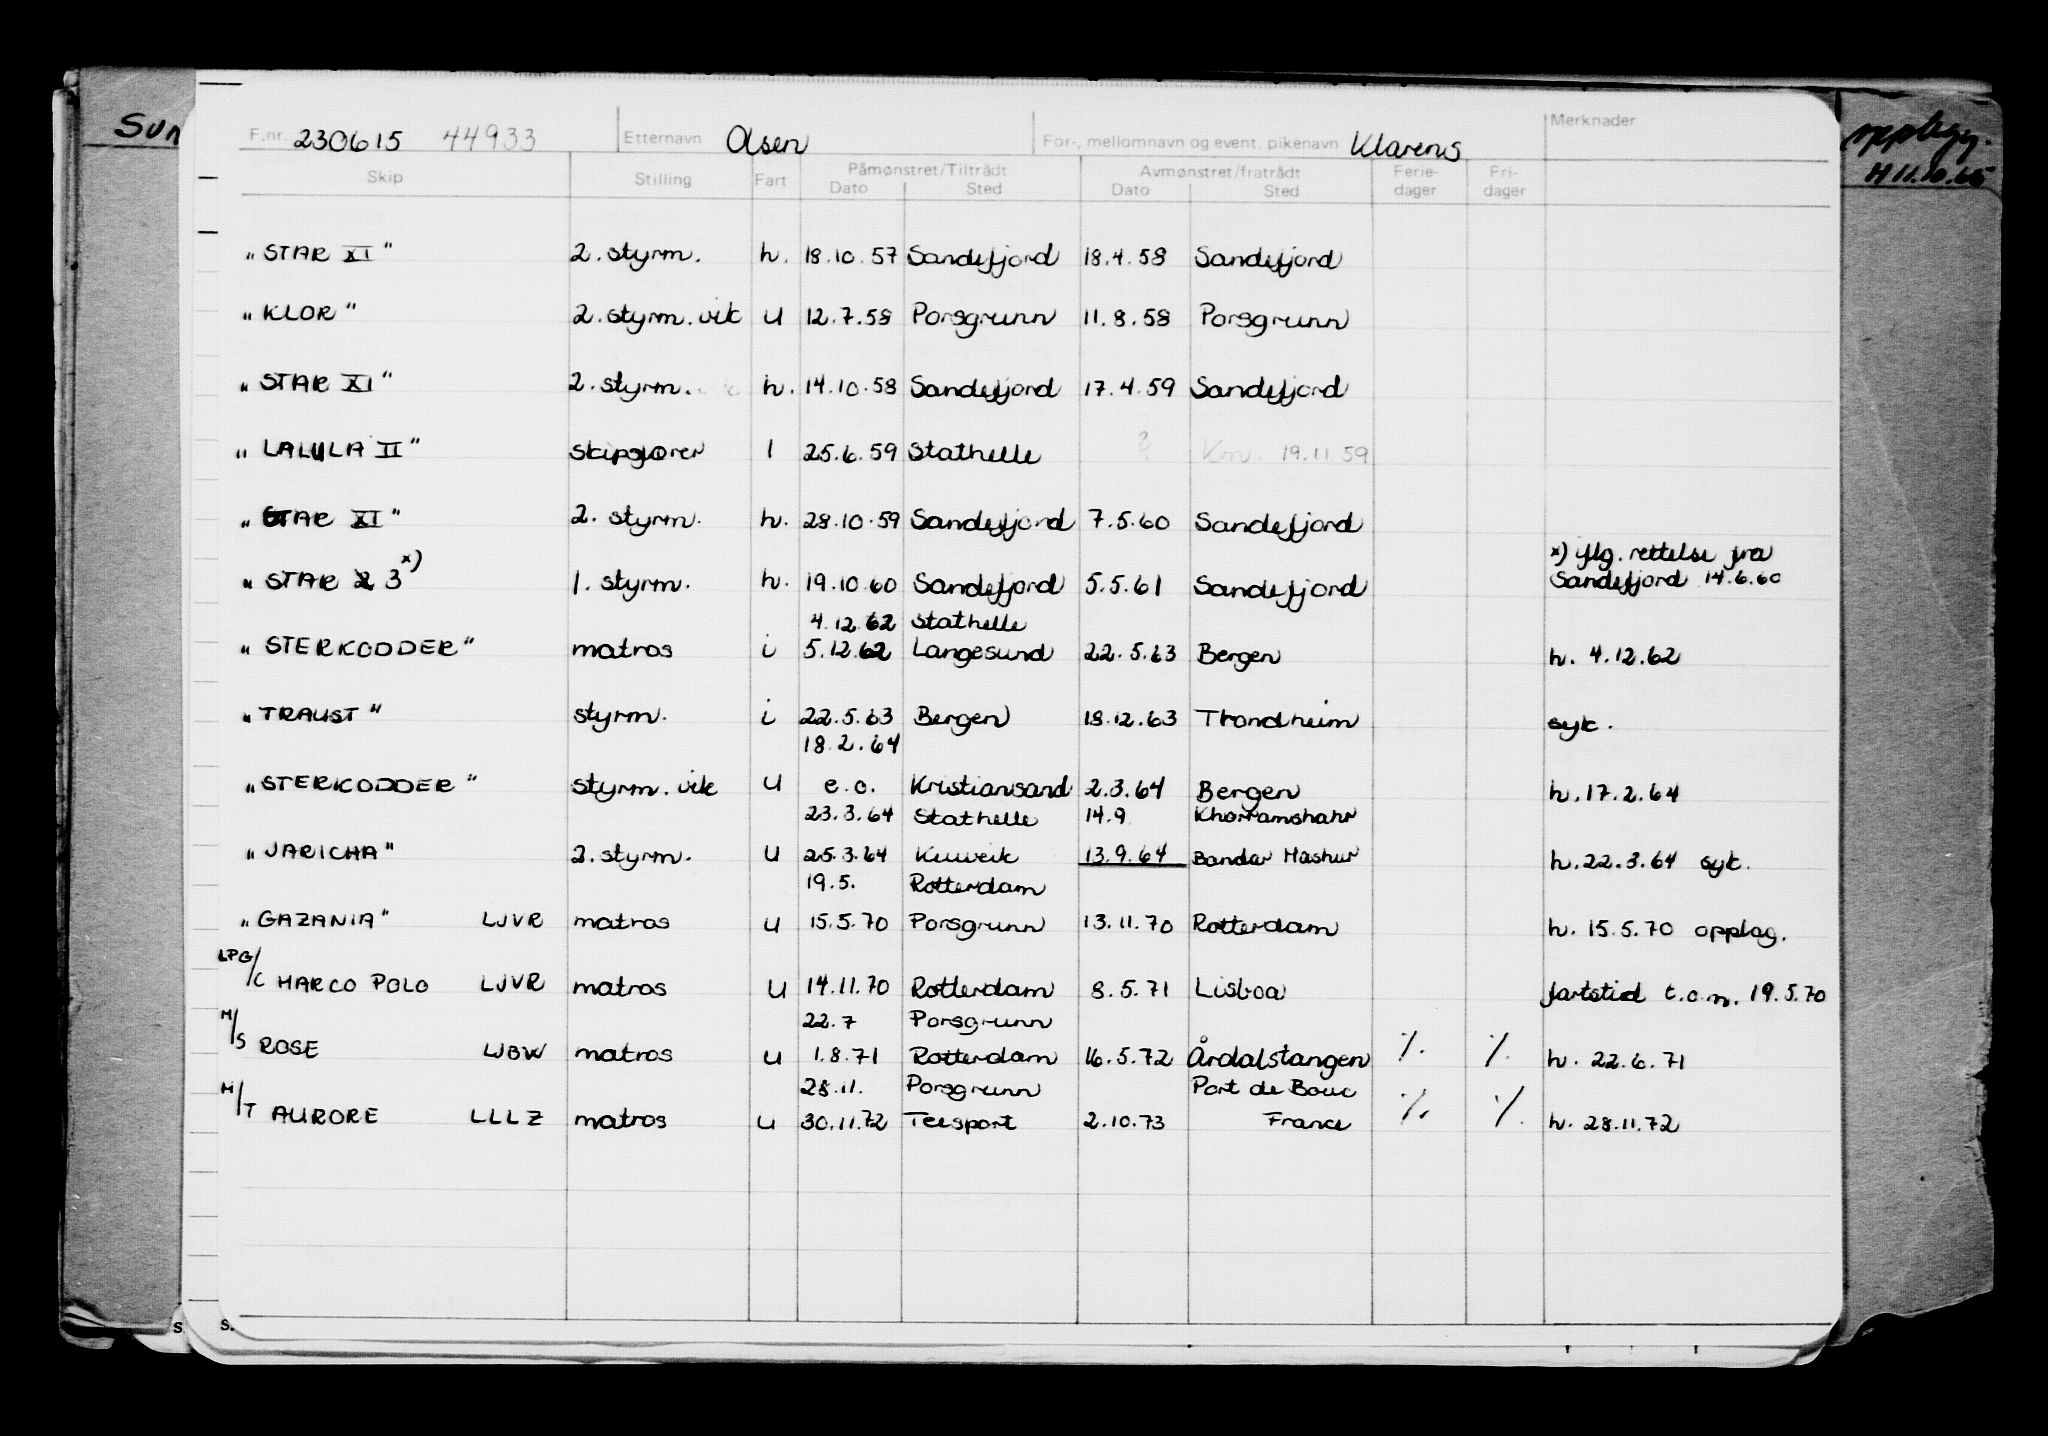 Sun
F.nr. 230615 44933 Etternavn Olsen For-, mellomnavn og event. pikenavn Klarens Merknader
opplegg.
H 11.10.65
Skip Stilling Fart Påmønstret/Tiltrådt Avmønstret/fratrådt Ferie- Fri-
Dato Sted Dato Sted dager dager
"STAR XI" 2. styrm. h. 18.10.57 Sandefjord 18.4.58 Sandefjord
"KLOR" 2. styrm. vik u 12.7.58 Porsgrunn 11.8.58 Porsgrunn
"STAR XI" 2. styrm. h. 14.10.58 Sandefjord 17.4.59 Sandefjord
"LALULA II" skipsfører l 25.6.59 Stathelle ? Km. 19.11.59
"STAR XI" 2. styrm. h. 28.10.59 Sandefjord 7.5.60 Sandefjord
x) iflg. rettelse fra
"STAR 2 3 x) 1. styrm. h. 19.10.60 Sandefjord 5.5.61 Sandefjord Sandefjord 14.6.60
4.12.62 Stathelle
"STERKODDER" matros i 5.12.62 Langesund 22.5.63 Bergen h. 4.12.62
"TRAUST" styrm. i 22.5.63 Bergen 18.12.63 Trondheim syk.
18.2.64
"STERKODDER" styrm. vik u e.o. Kristiansand 2.3.64 Bergen h. 17.2.64
23.3.64 Stathelle 14.9 Khorramshahr
"JARICHA" 2. styrm. u 25.3.64 13.9.64 Bandar Mashur h. 22.3.64 syk.
19.5. Rotterdam
"GAZANIA" LJVR matros u 15.5.70 Porsgrunn 13.11.70 Rotterdam h. 15.5.70 opplag.
LPG/C MARCO POLO LJVR matros u 14.11.70 Rotterdam 8.5.71 Lisboa fartstid t.o.m. 19.5.70
22.7 Porsgrunn
M/S ROSE LJBW matros u 1.8.71 Rotterdam 16.5.72 Årdalstangen ./. ./. h. 22.6.71
28.11. Porsgrunn Port de Bouc
M/T AURORE LLLZ matros u 30.11.72 Teesport 2.10.73 France ./. ./. h. 28.11.72
S. S.